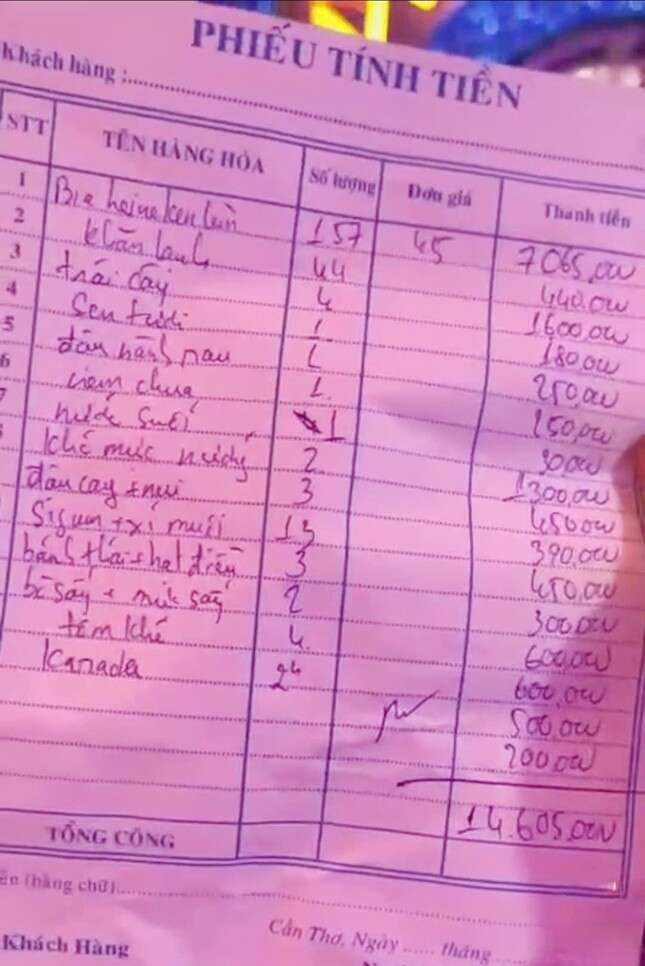 PHIẾU TÍNH TIỀN
Khách hàng :
STT TÊN HÀNG HÓA Số lượng Đơn giá Thành tiền
1 Bia heineken lùn 157 45 7065,000
2 khăn lạnh 44 440,000
3 trái cây 4 1600,000
4 Sen tươi 1 180,000
5 đậu hành nau 1 250,000
6 nem chua 1 150,000
7 nước suối 1 30,000
Khô mực nướng 2 1300,000
đậu cay + nui 3 450,000
Sigum + xí muội 13 390,000
bánh thái + hạt điều 3 450,000
bò sấy + mít sấy 2 300,000
tôm khô 4 600,000
Kanada 24 600,000
500,000
200,000
14.605,000
TỔNG CỘNG
(bằng chữ)
Cần Thơ, Ngày ...... tháng
Khách Hàng